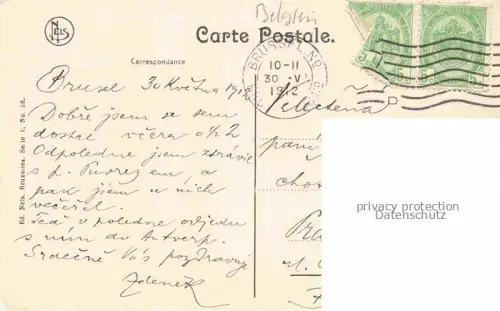 NELS
Belgien
Carte Postale.
Correspondance
BRUSSEL
10-11
30 V
1912
5 5 5
Brusel 30 Května 1912
Dobře jsem se sem
dostal včera o ½ 2
Odpoledne jsem strávil
s p. a
pak jsem u nich
večeřel.
Teď v poledne odjedu
s ním do Antverp.
Srdečně Vás pozdravuje
Zdeněk
Slečtena
paní
Pra
ul.
Ed. Nels, Bruxelles. Serie 1, No. 58.
privacy protection
Datenschutz